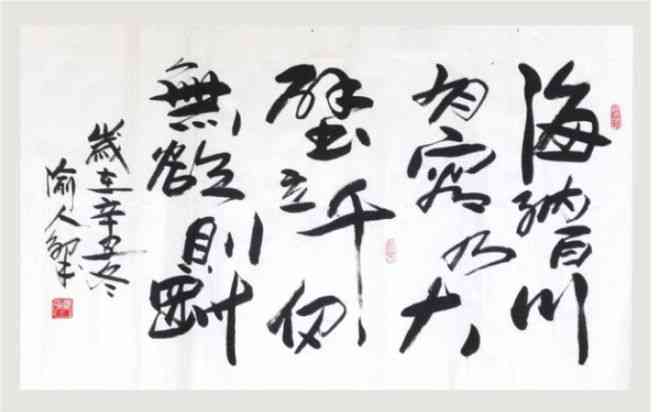 海納百川
有容乃大
壁立千仞
無欲則剛
歲在辛丑冬
俞人